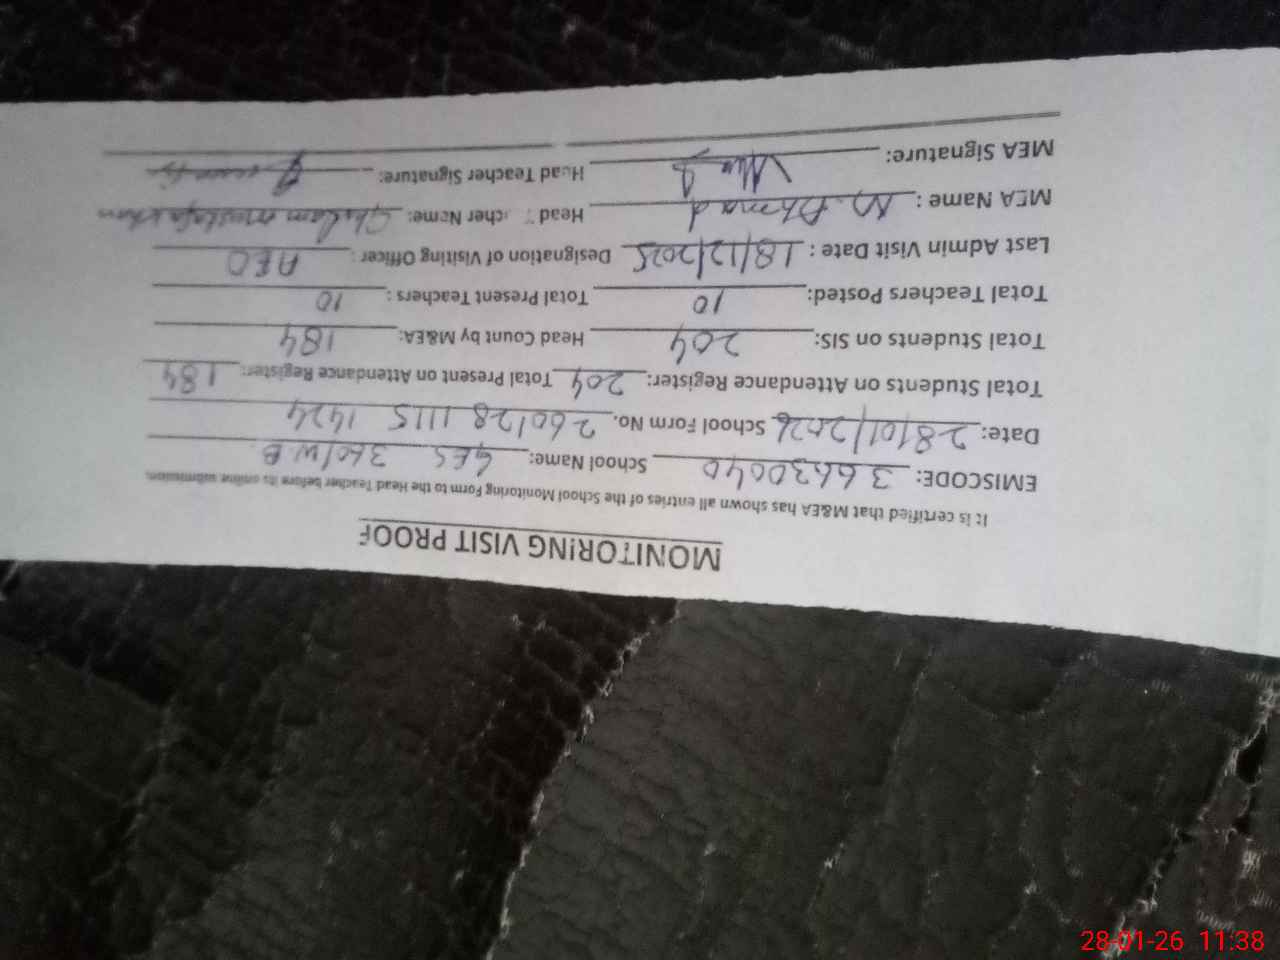 MONITORING VISIT PROOF
It is certified that M&EA has shown all entries of the School Monitoring Form to the Head Teacher before its online submission.
EMISCODE: 36630040 School Name: GES 360/W.B
Date: 28/01/2026 School Form No. 260128 1115 1424
Total Students on Attendance Register: 204 Total Present on Attendance Register: 184
Total Students on SIS: 204 Head Count by M&EA: 184
Total Teachers Posted: 10 Total Present Teachers: 10
Last Admin Visit Date: 18/12/2025 Designation of Visiting Officer: AEO
MEA Name: M. Ahmad Head Teacher Name: Ghulam Mustafa Khan
MEA Signature: Head Teacher Signature:
28-01-26 11:38